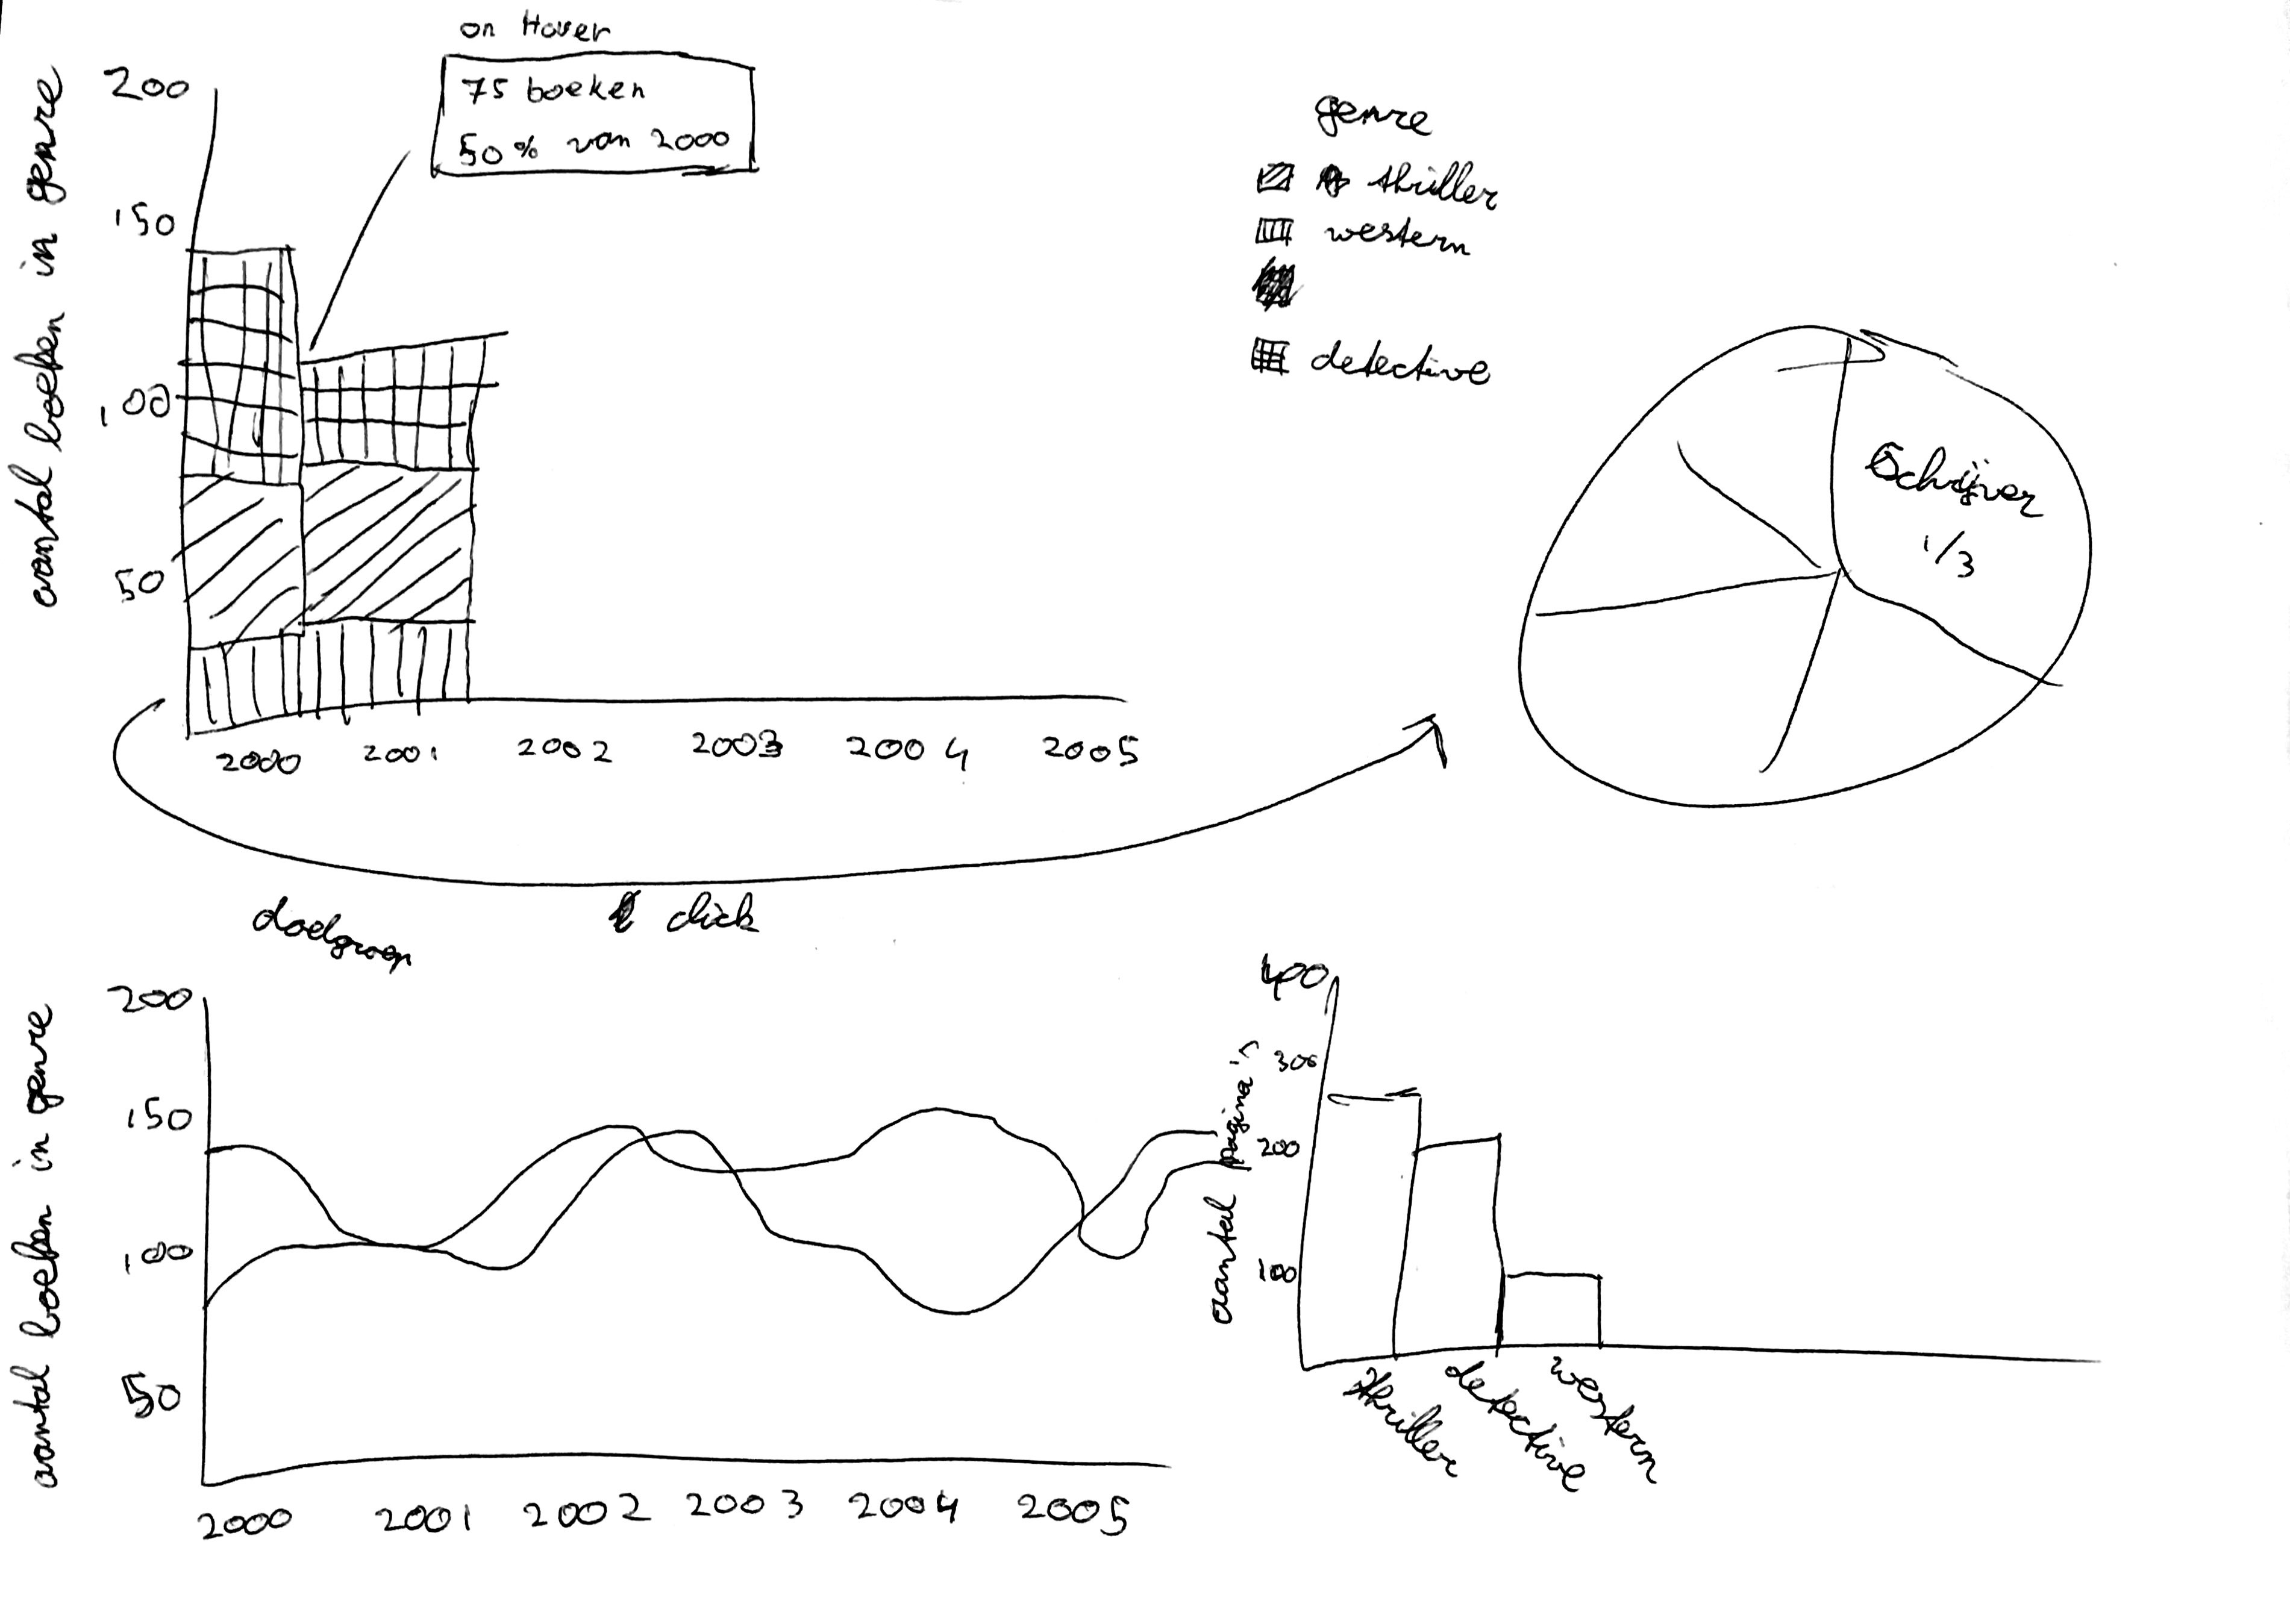 on Hover
75 boeken
50% van 2000
aantal boeken in genre
200
150
100
50
2000 2001 2002 2003 2004 2005
genre
thriller
western
detective
Schrijver
1/3
click
doelgroep
aantal boeken in genre
200
150
100
50
2000 2001 2002 2003 2004 2005
aantal pagina's
400
300
200
100
thriller
detective
western